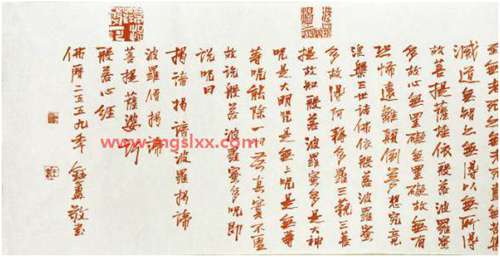 滅道無智亦無得以無所得
故菩提薩埵依般若波羅蜜
多故心無罣礙無罣礙故無有
恐怖遠離顛倒夢想究竟
涅槃三世諸佛依般若波羅蜜
多故得阿耨多羅三藐三菩
提故知般若波羅蜜多是大神
咒是大明咒是無上咒是無等
等咒能除一切苦真實不虛
故說般若波羅蜜多咒即
說咒曰
揭諦揭諦波羅揭諦
波羅僧揭諦
菩提薩婆訶
般若心經
佛曆二五五九年 敬書
www.mgslxx.com